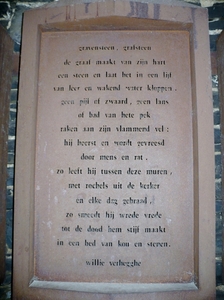 gravensteen, grafsteen
de graaf maakt van zijn hart
een steen en laat het in een lijf
van leer en wakend water kloppen.
geen pijl of zwaard, geen lans
of bad van hete pek
raken aan zijn vlammend vel:
hij heerst en wordt gevreesd
door mens en rat.
zo leeft hij tussen deze muren,
met rochels uit de kerker
en elke dag gebraad,
zo smeedt hij wrede vrede
tot de dood hem stijf maakt
in een bed van kou en stenen.
willie verhegghe